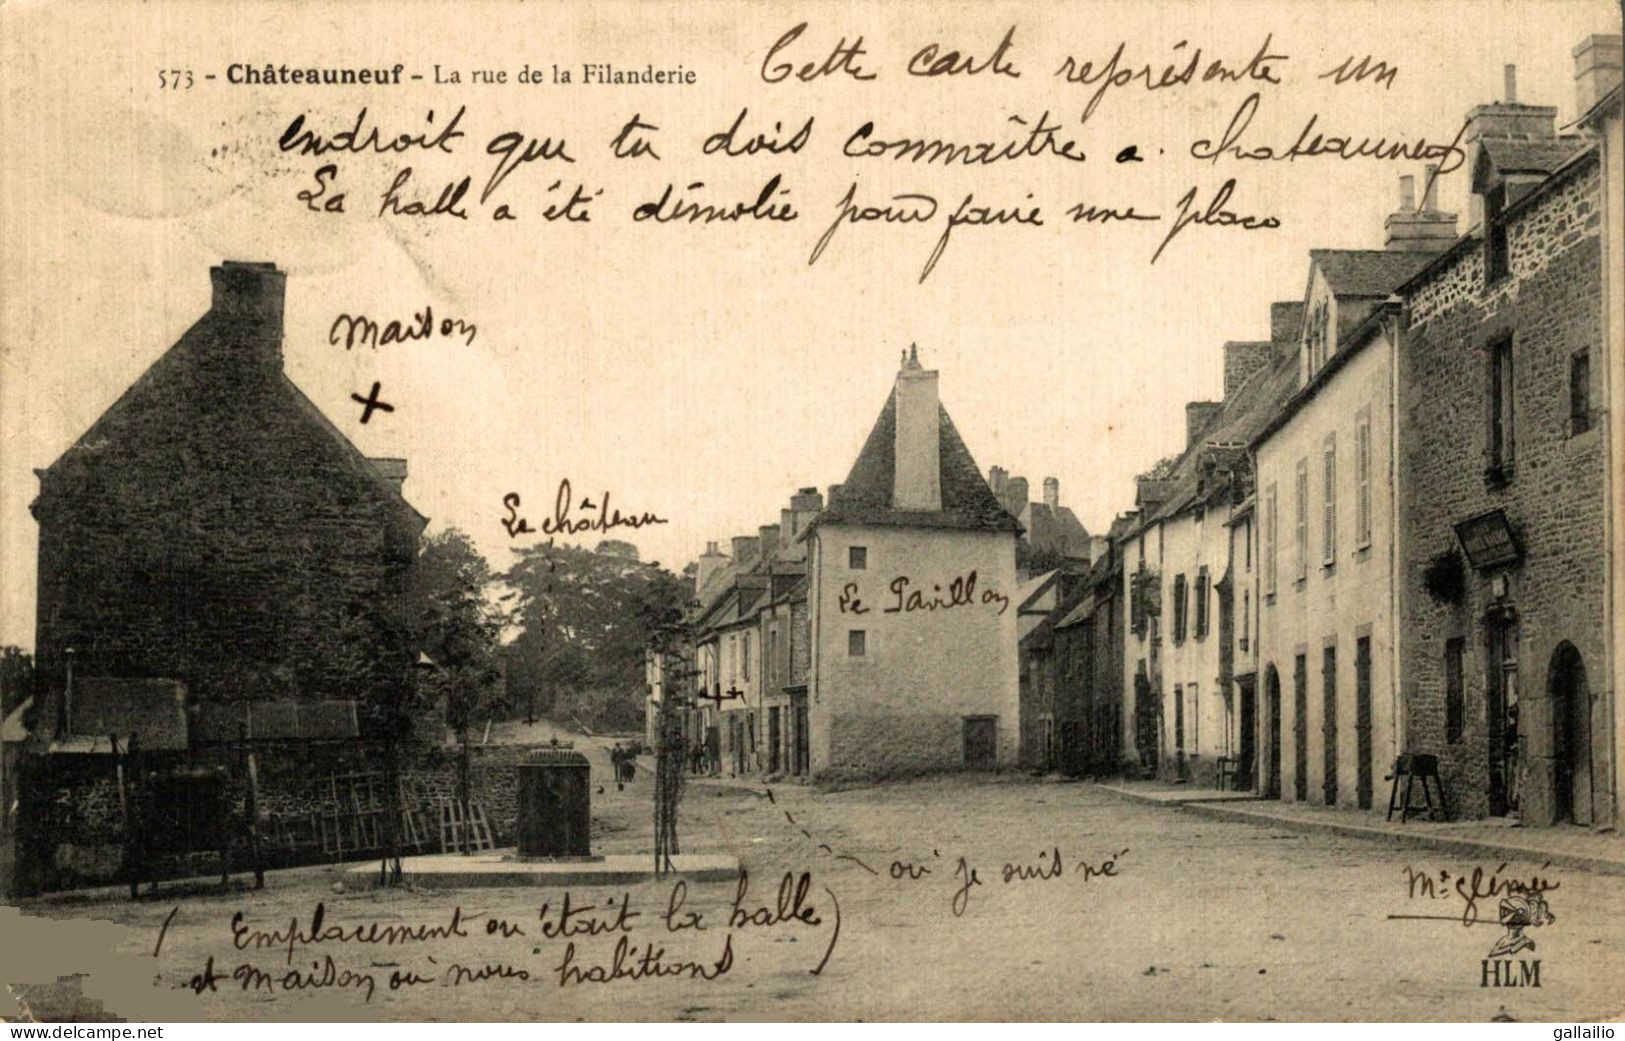 573 - Châteauneuf - La rue de la Filanderie
Cette carte représente un
endroit que tu dois connaître a chateauneuf
La halle a été démolie pour faire une place
maison
Le château
Le Pavillon
où je suis né
Emplacement ou était la halle
et maison où nous habitions
HLM
delcampe.net
gallailio